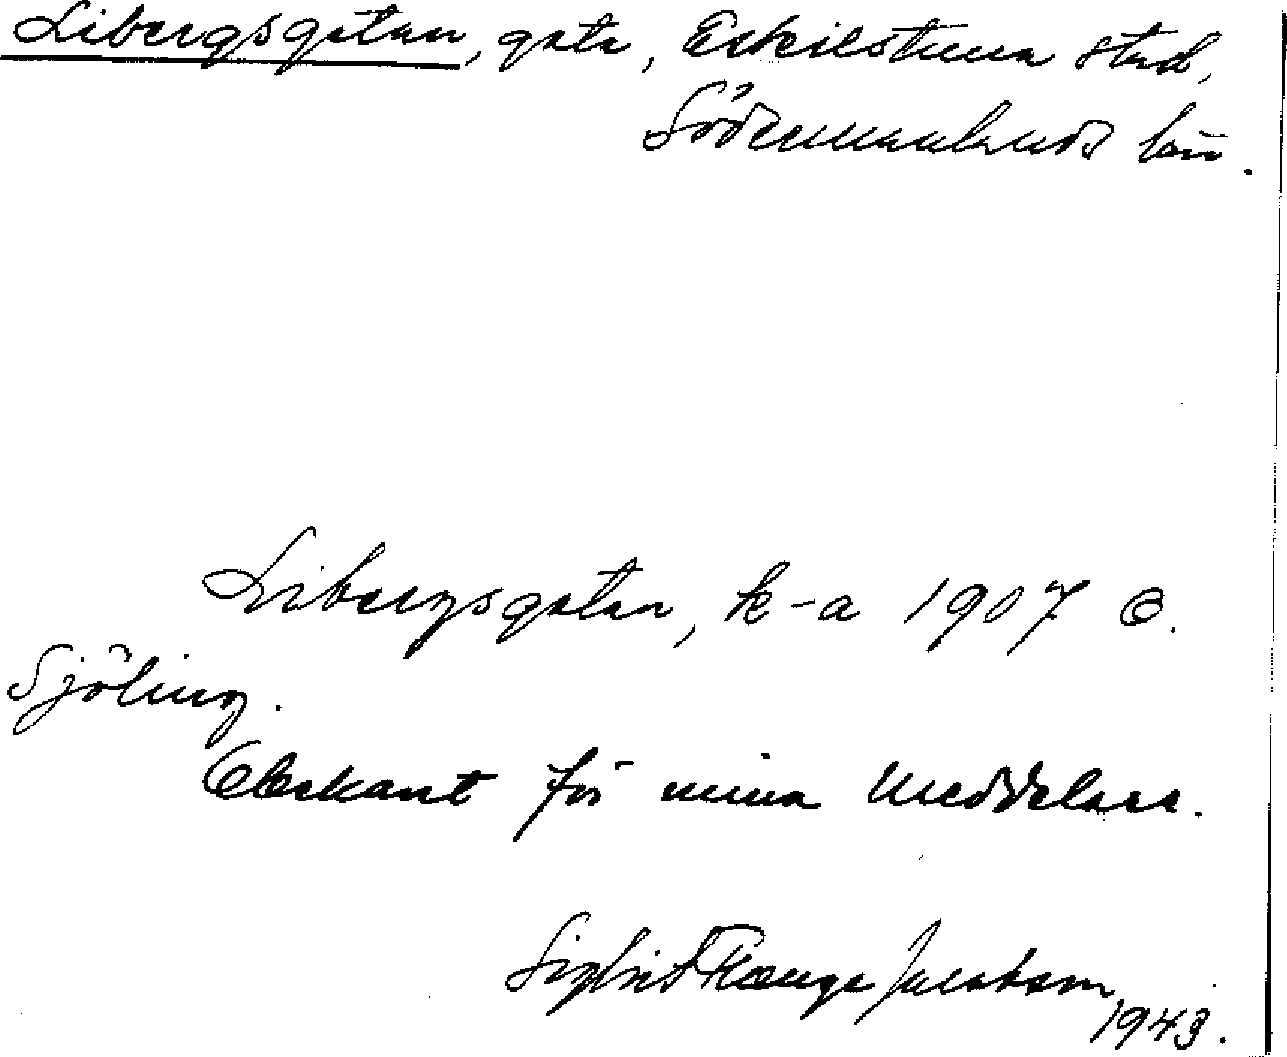 Libergsgatan, gata, Eskilstuna stad,
Södermanlands län.
Libergsgatan, k-a 1907 C.
Sjöling.
Obekant för mina meddelare.
Jacobson
1943.